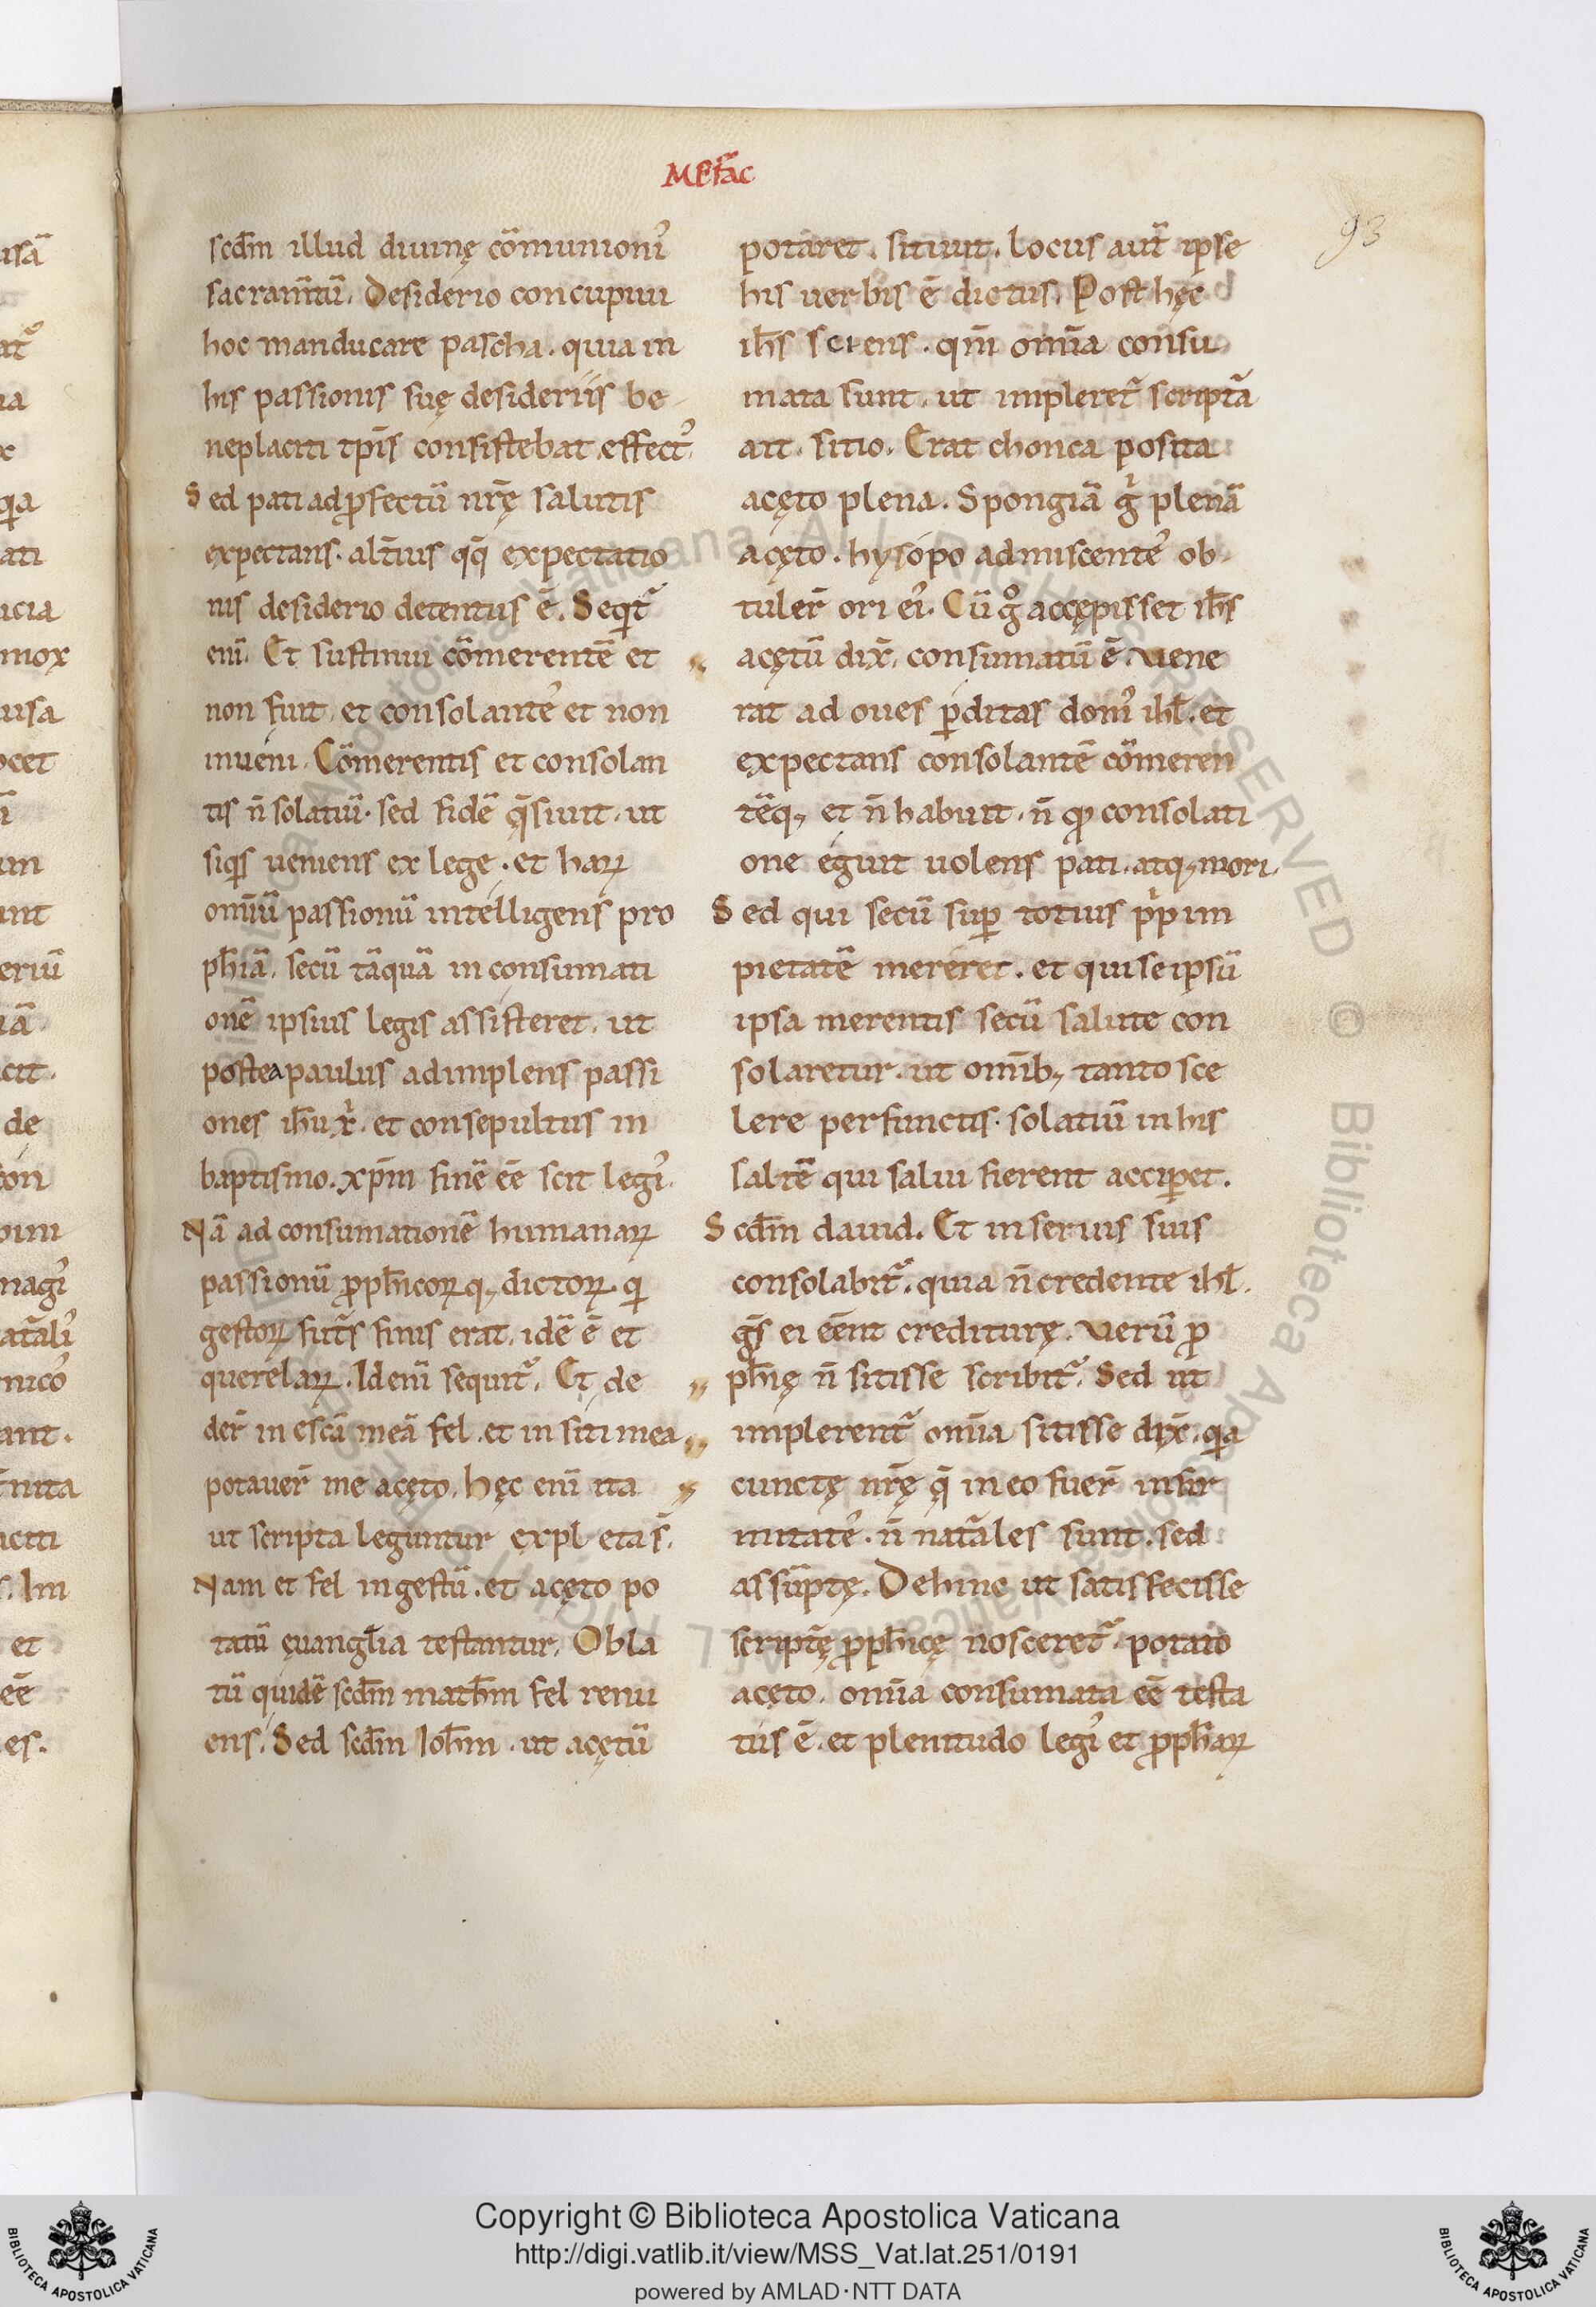 MEfac
93
scdm̄ illud diuinę cōmunioni᷒
sacram̄tū. Desiderio concupiui
hoc manducare pascha. quia in
his passionis suę desideriis be
neplaciti tp̄is consistebat effect᷒.
Sed pati ad ꝓfectū nr̄ę salutis
expectans. alt̄ius qq̄ expectatio
nis desiderio detentus ē. Seqit᷑
eni᷑. Et sustinui cōmerentē et
non fuit, et consolante᷒ et non
inueni. Cōmerentis et consolan
tis n̄ solatiū. sed fidē q̄siuit. ut
siq̇s ueniens ex lege. et haꝝ
om̄iū passionū intelligens pro
ph̄iā. secū tāquā in consumati
onē ipsius legis assisteret. ut
postea paulus adimplens passi
ones ih̄u xi̇. et consepultus in
baptismo. xp̄m finē eē scit legi᷒.
Nā ad consumationē humanaꝝ
passionū ꝓph̄icoꝝ q; dictoꝝ qi
gestoꝝ fut̄s finis erat. idē ē et
querelaꝝ. Id eni᷑ sequit᷑. Et de
der̄ in escā meā fel. et in siti mea
potauer̄ me acęto. hęc eni᷑ ita
ut scripta leguntur expleta s̄.
Nam et fel ingestū. et acęto po
tatū ęuangl̄ia testantur. Obla
tū quidē scdm̄ math̄m fel renu
ens. Sed scdm̄ Ioh̄m. ut acętū
potaret. sitiuit. Locus aut̄ ipse
his uerbis ē dictus. Post hęc
ih̄s sciens. qm̄ om̄ia consu
mata sunt. ut impleret᷑ script̄a
ait. sitio. Erat chonca posita
acęto plena. Spongiā gi̇ plenā
acęto. hysopo admiscente᷒ ob
tuler̄ ori ei᷒. Cū go̊ accępisset ih̄s
acętū dix̄. consumatū ē. Uene
rat ad oues ꝑditas domi᷒ ihl̄. et
expectans consolantē cōmeren
tēq; et n̄ habuit. n̄ qͦ consolati
one eguit uolens pati. atq; mori.
Sed qui secū suꝑ totius pi̇pim
pietatē mereret. et qui se ipsū
ipsa merentis secū salute con
solaretur. ut omīb; tanto sce
lere perfunctis. solatiū in his
saltē qui salui fierent acciꝑet.
Scdm̄ dauid. Et in seruis suis
consolabit᷑. quia n̄ credente ihl̄.
gs̄ ei eēnt crediturę. Uerū ꝓ
ph̄ię n̄ sitisse scribit᷑. Sed ut
implerent᷑ om̄ia sitisse dix̄. qia
cunctę nr̄ę q̄ in eo fuer̄ infir
mitate᷒. n̄ nat̄ales sunt. sed
assūptę. Dehinc ut satisfecisse
script̄ę ꝓph̄icę nosceret᷑. potato
acęto. om̄ia consumata eē testa
tus ē. et plenitudo legi᷒ et ꝓph̄aꝝ
Copyright © Biblioteca Apostolica Vaticana
http://digi.vatlib.it/view/MSS_Vat.lat.251/0191
powered by AMLAD·NTT DATA